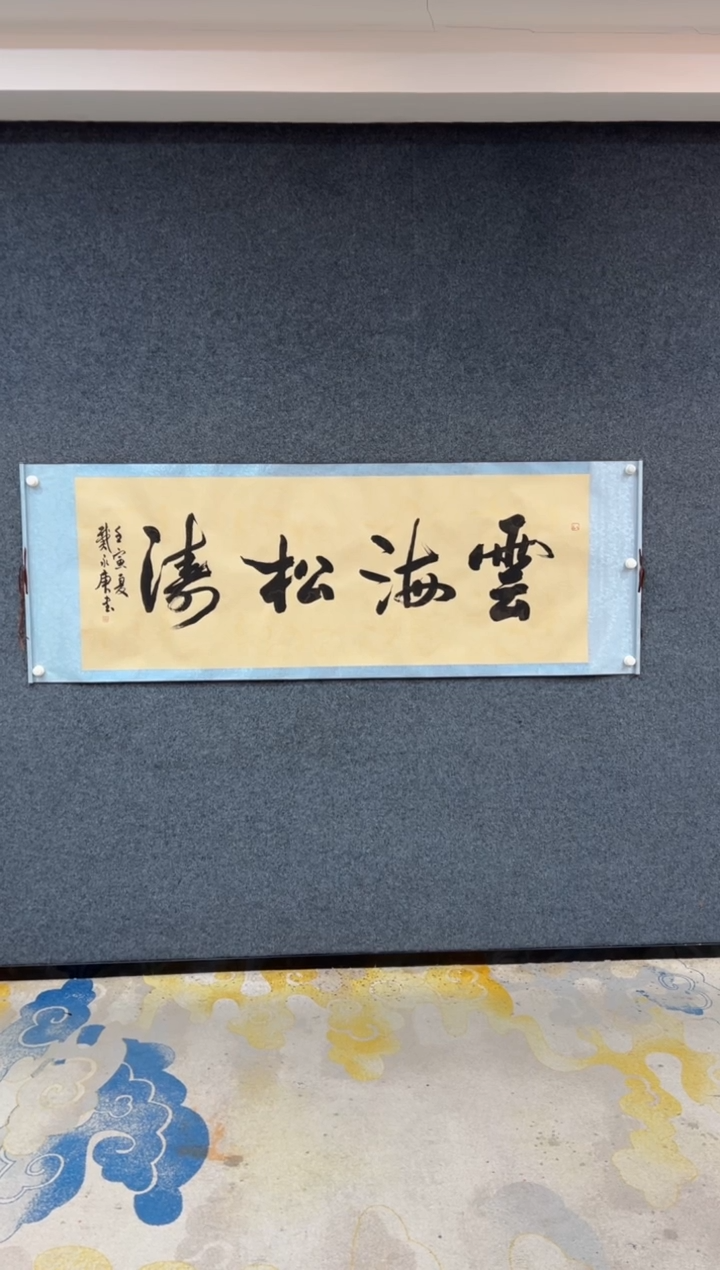 雲海松濤
壬寅夏
戴永康書